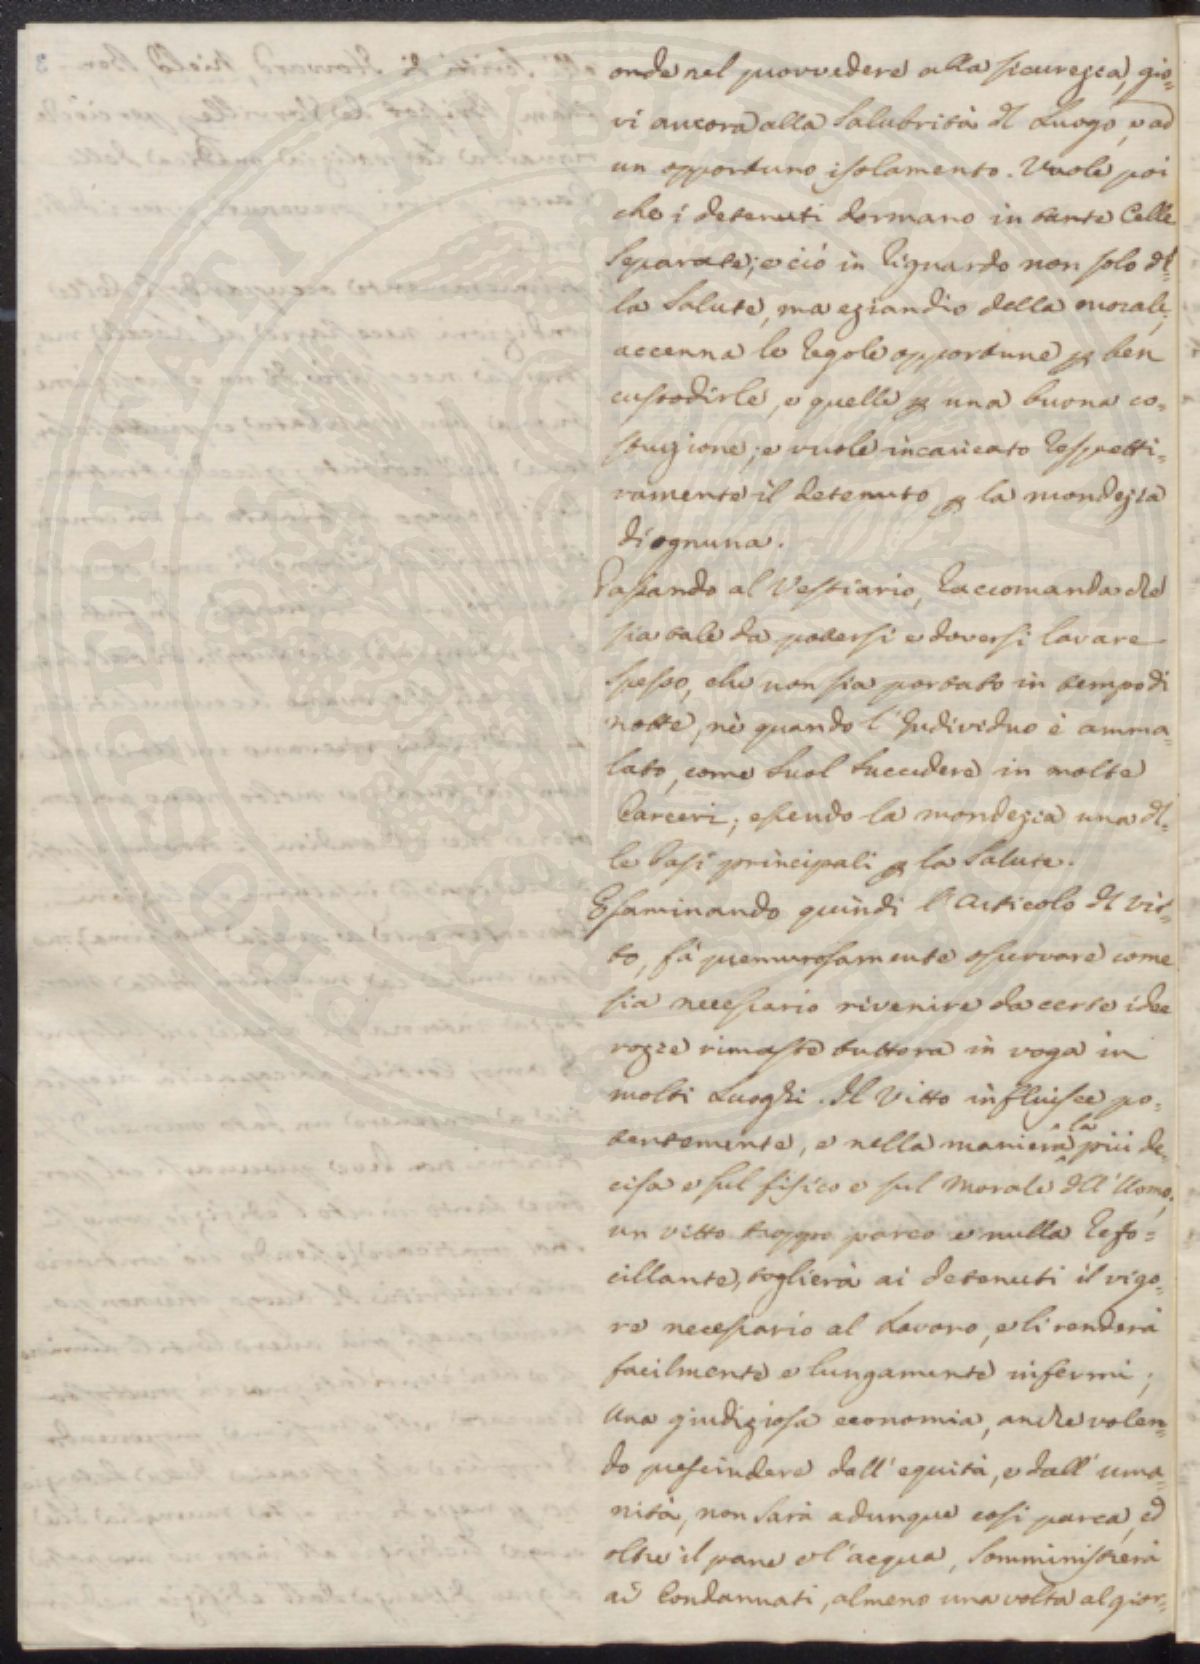 onde nel provvedere alla sicurezza, gio=
vi ancora alla Salubrità dl Luogo, e ad
un opportuno isolamento. Vuole poi
che i detenuti dormano in tante Celle
Separate; e ciò in riguardo non solo dl=
la Salute, ma eziandio della morale;
accenna le regole opportune p ben
custodirle, e quelle p una buona co=
struzione; e vuole incaricato respetti=
vamente il detenuto p la mondezza
di ognuna.
Passando al Vestiario, raccomanda che
sia tale da potersi e doversi lavare
spesso, che non sia portato in tempo di
notte, nè quando l'Individuo è amma=
lato, come suol succedere in molte
Carceri; essendo la mondezza una dl=
le basi principali p la Salute.
Esaminando quindi l'Articolo dl vit=
to, fà premurosamente osservare come
sia necessario rivenire da certe idee
rozze rimaste tuttora in voga in
molti Luoghi. Il Vitto influisce po=
tentemente, e nella maniera la più de=
cisa e sul fisico e sul Morale dll'Uomo;
un vitto troppo parco e nulla refo=
cillante, toglierà ai detenuti il vigo=
re necessario al Lavoro, e li renderà
facilmente e lungamente infermi;
Una giudiziosa economia, anche volen=
do prescindere dall'equità, e dall'uma=
nità, non sarà adunque così parca, ed
oltre il pane e l'acqua, somministrerà
ai Condannati, almeno una volta al gior=